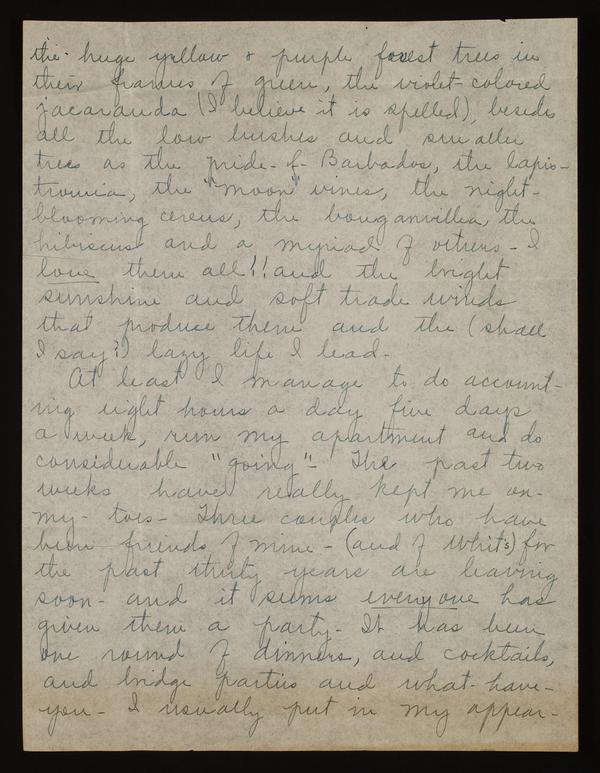 the huge yellow & purple forest trees in
their frames of green, the violet-colored
jacaranda (I believe it is spelled), besides
all the low bushes and smaller
trees as the pride-of-Barbados, the lapis-
tromia, the "moon" vines, the night-
blooming cereus, the bouganvillea, the
hibiscus and a myriad of others - I
love them all!! and the bright
sunshine and soft trade winds
that produce them and the (shall
I say?) lazy life I lead -
At least I manage to do account-
ing eight hours a day five days
a week, run my apartment and do
considerable "going" - The past two
weeks have really kept me on-
my-toes - Three couples who have
been friends of mine - (and of Whit's) for
the past thirty years are leaving
soon - and it seems everyone has
given them a party - It has been
one round of dinners, and cocktails,
and bridge parties and what-have-
you - I usually put in my appear-